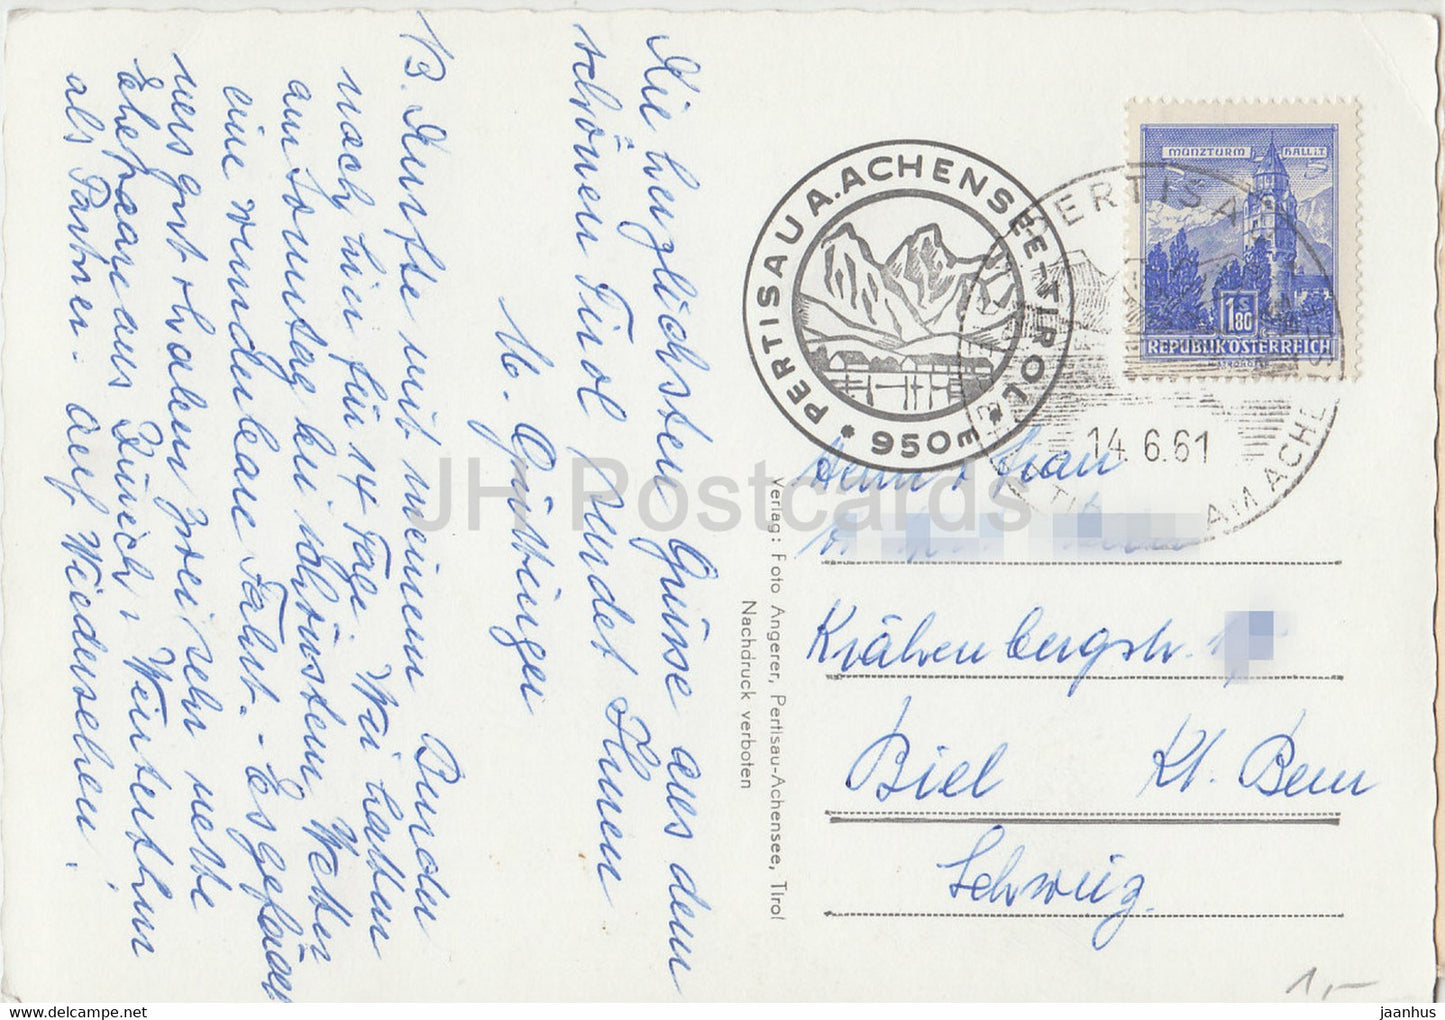 Die herzlichsten Grüsse aus dem
schönen Tirol sendet Ihnen
M.
B. Durfte mit meinem Bruder
noch hier für 14 Tage. Wir hatten
am Sonntag bei schönstem Wetter
eine wunderbare Fahrt. - Es gefällt
uns gut haben zwei sehr nette
Ehepaare aus Zürich & Winterthur
als Partner. Auf Wiedersehen!
Verlag: Foto Angerer, Pertisau-Achensee, Tirol
Nachdruck verboten
PERTISAU A. ACHENSEE-TIROL
* 950m *
PERTISAU AM ACHENSEE
14.6.61
MÜNZTURM HALL i.T.
S
1.80
REPUBLIK ÖSTERREICH
Herrn & Frau
Krähenbergstr. 1
Biel Kt. Bern
Schweiz.
1,-
JH Postcards
www.hippostcard.com
jaanhus